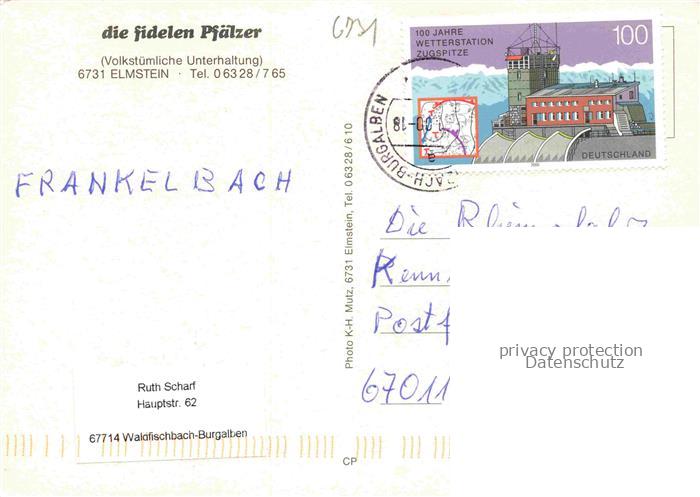 die fidelen Pfälzer
(Volkstümliche Unterhaltung)
6731 ELMSTEIN · Tel. 06328/765
6731
100 JAHRE
WETTERSTATION
ZUGSPITZE
100
DEUTSCHLAND
BACH-BURGALBEN
FRANKELBACH
Photo K-H. Mutz, 6731 Elmstein, Tel. 06328/610
Die
Postf
67011
privacy protection
Datenschutz
Ruth Scharf
Hauptstr. 62
67714 Waldfischbach-Burgalben
CP